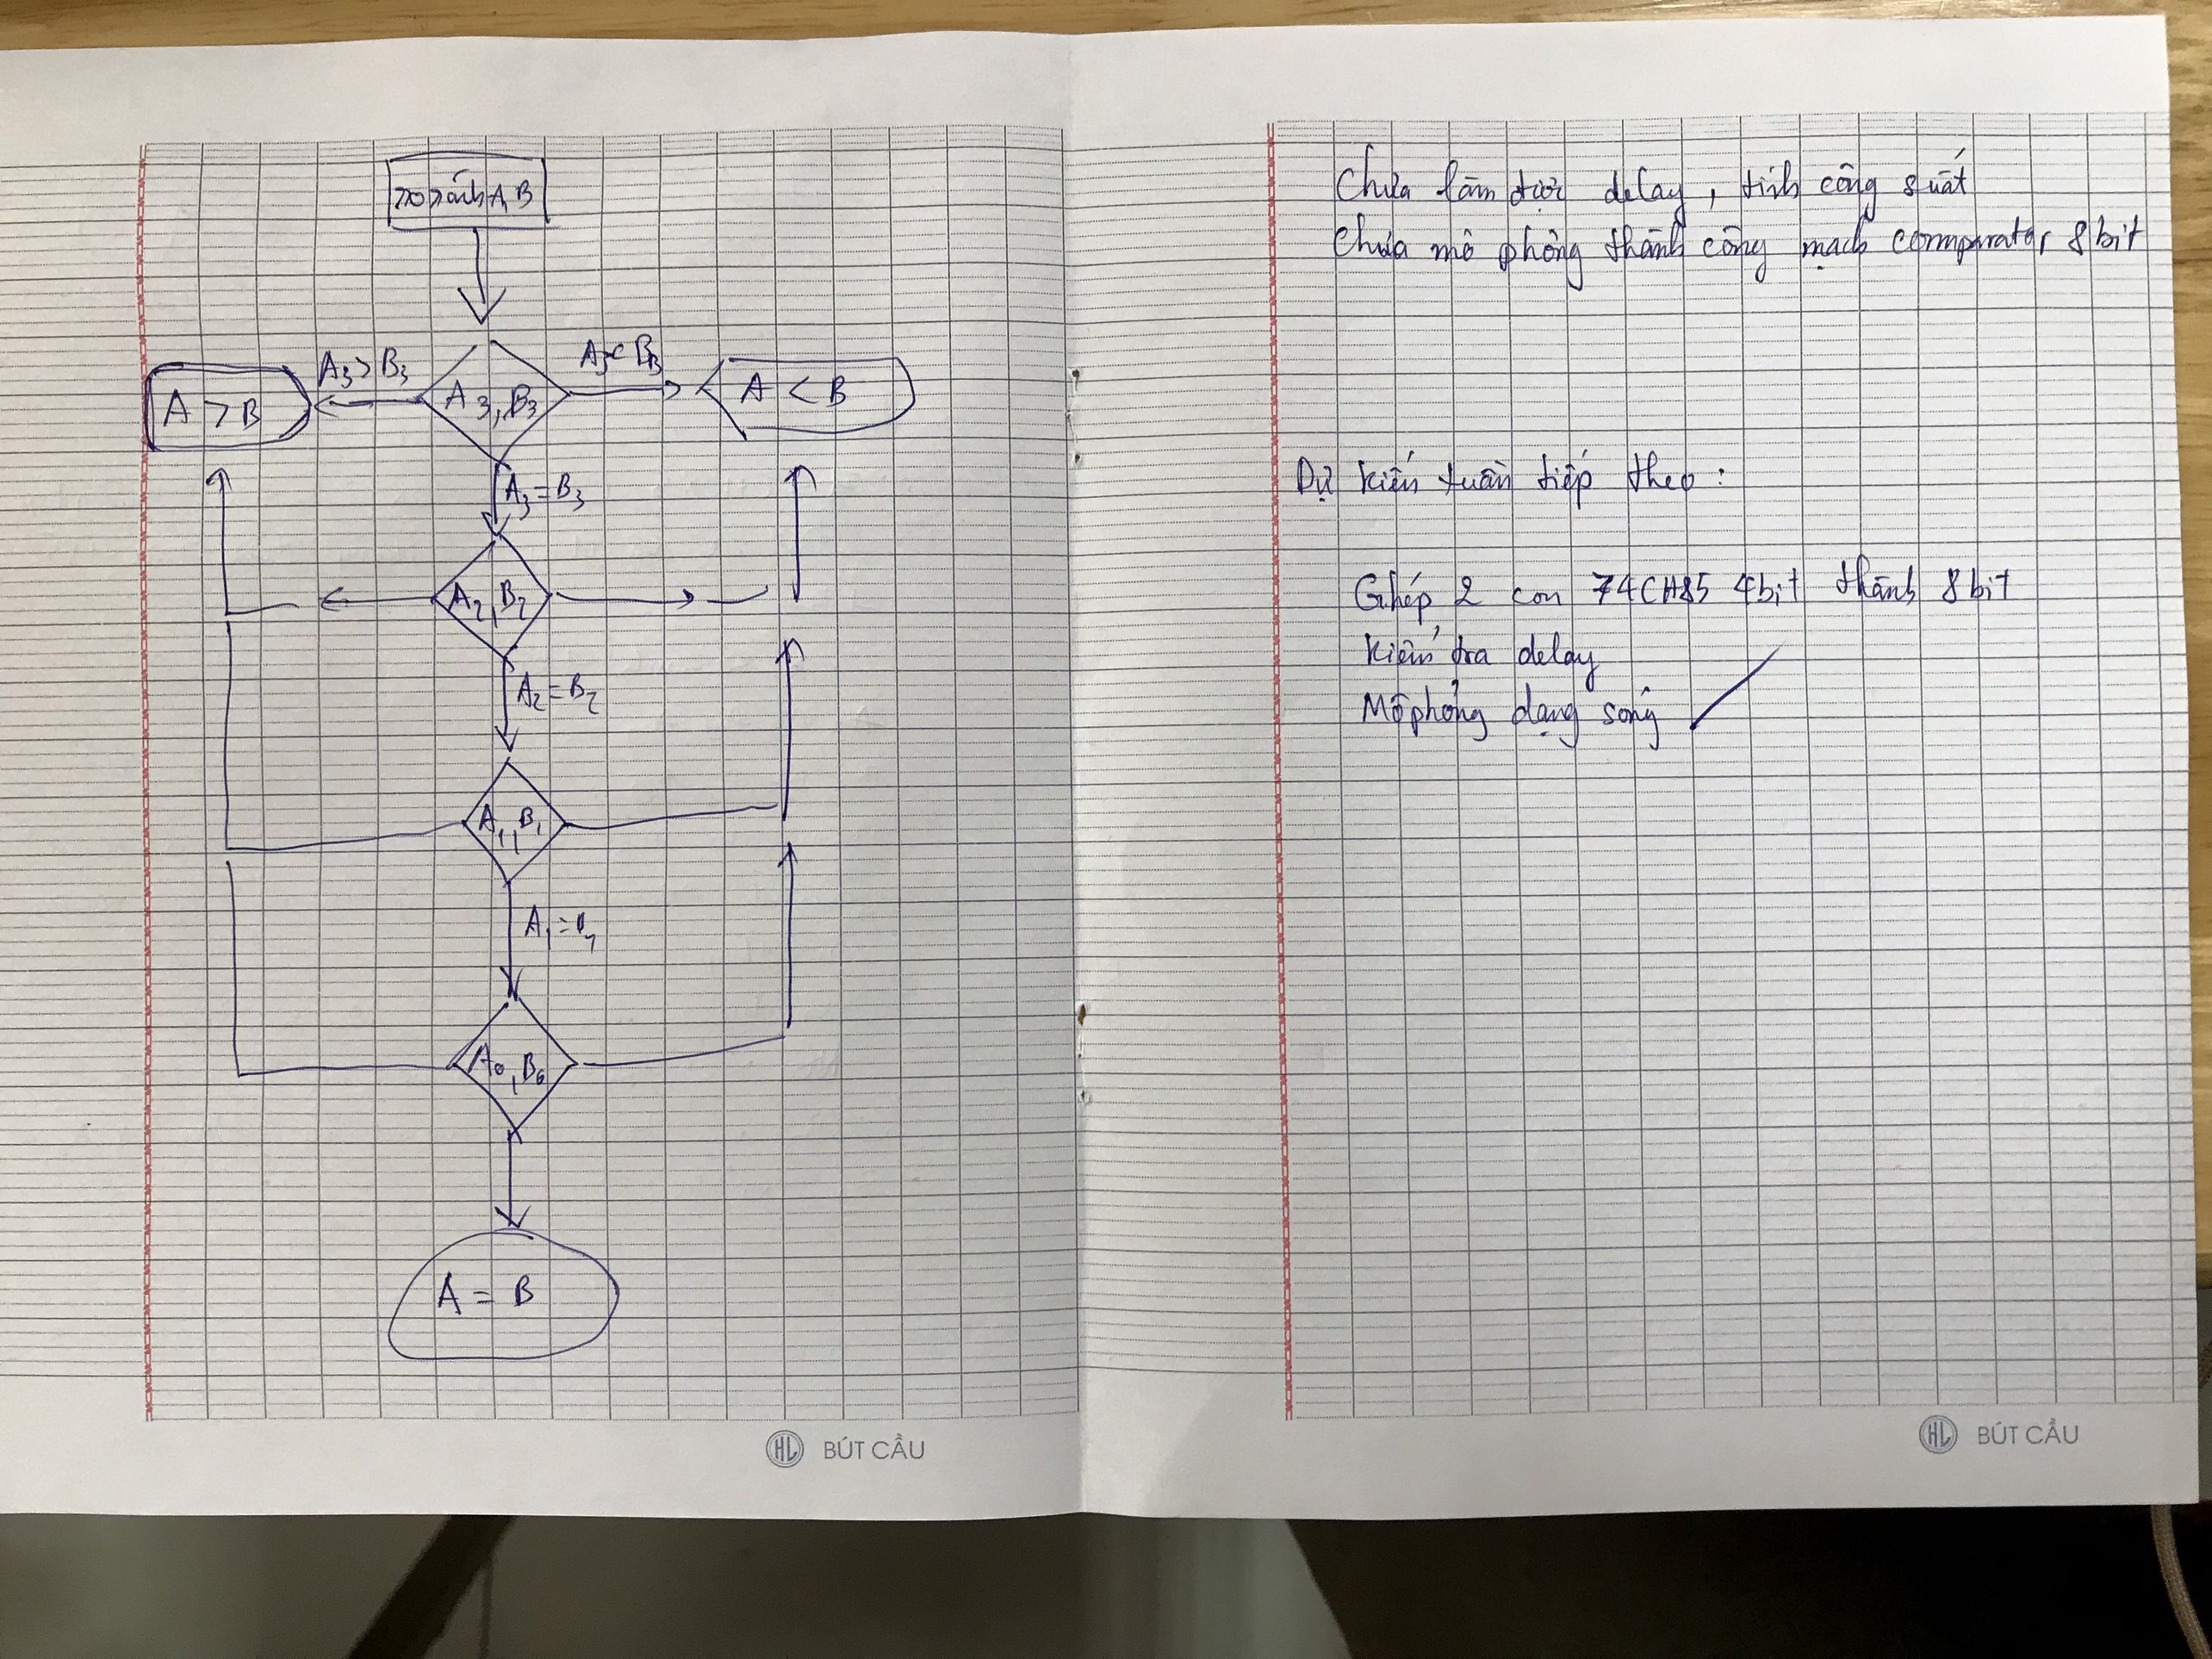 so sánh A, B
A3 > B3
A3 < B3
A > B
A3, B3
A < B
A3 = B3
A2, B2
A2 = B2
A1, B1
A1 = B1
A0, B0
A = B
BÚT CẦU
Chưa làm được delay, tính công suất
Chưa mô phỏng thành công mạch comparator 8 bit
Dự kiến tuần tiếp theo :
Ghép 2 con 74CH85 4bit thành 8 bit
Kiểm tra delay
Mô phỏng dạng sóng
HL BÚT CẦU